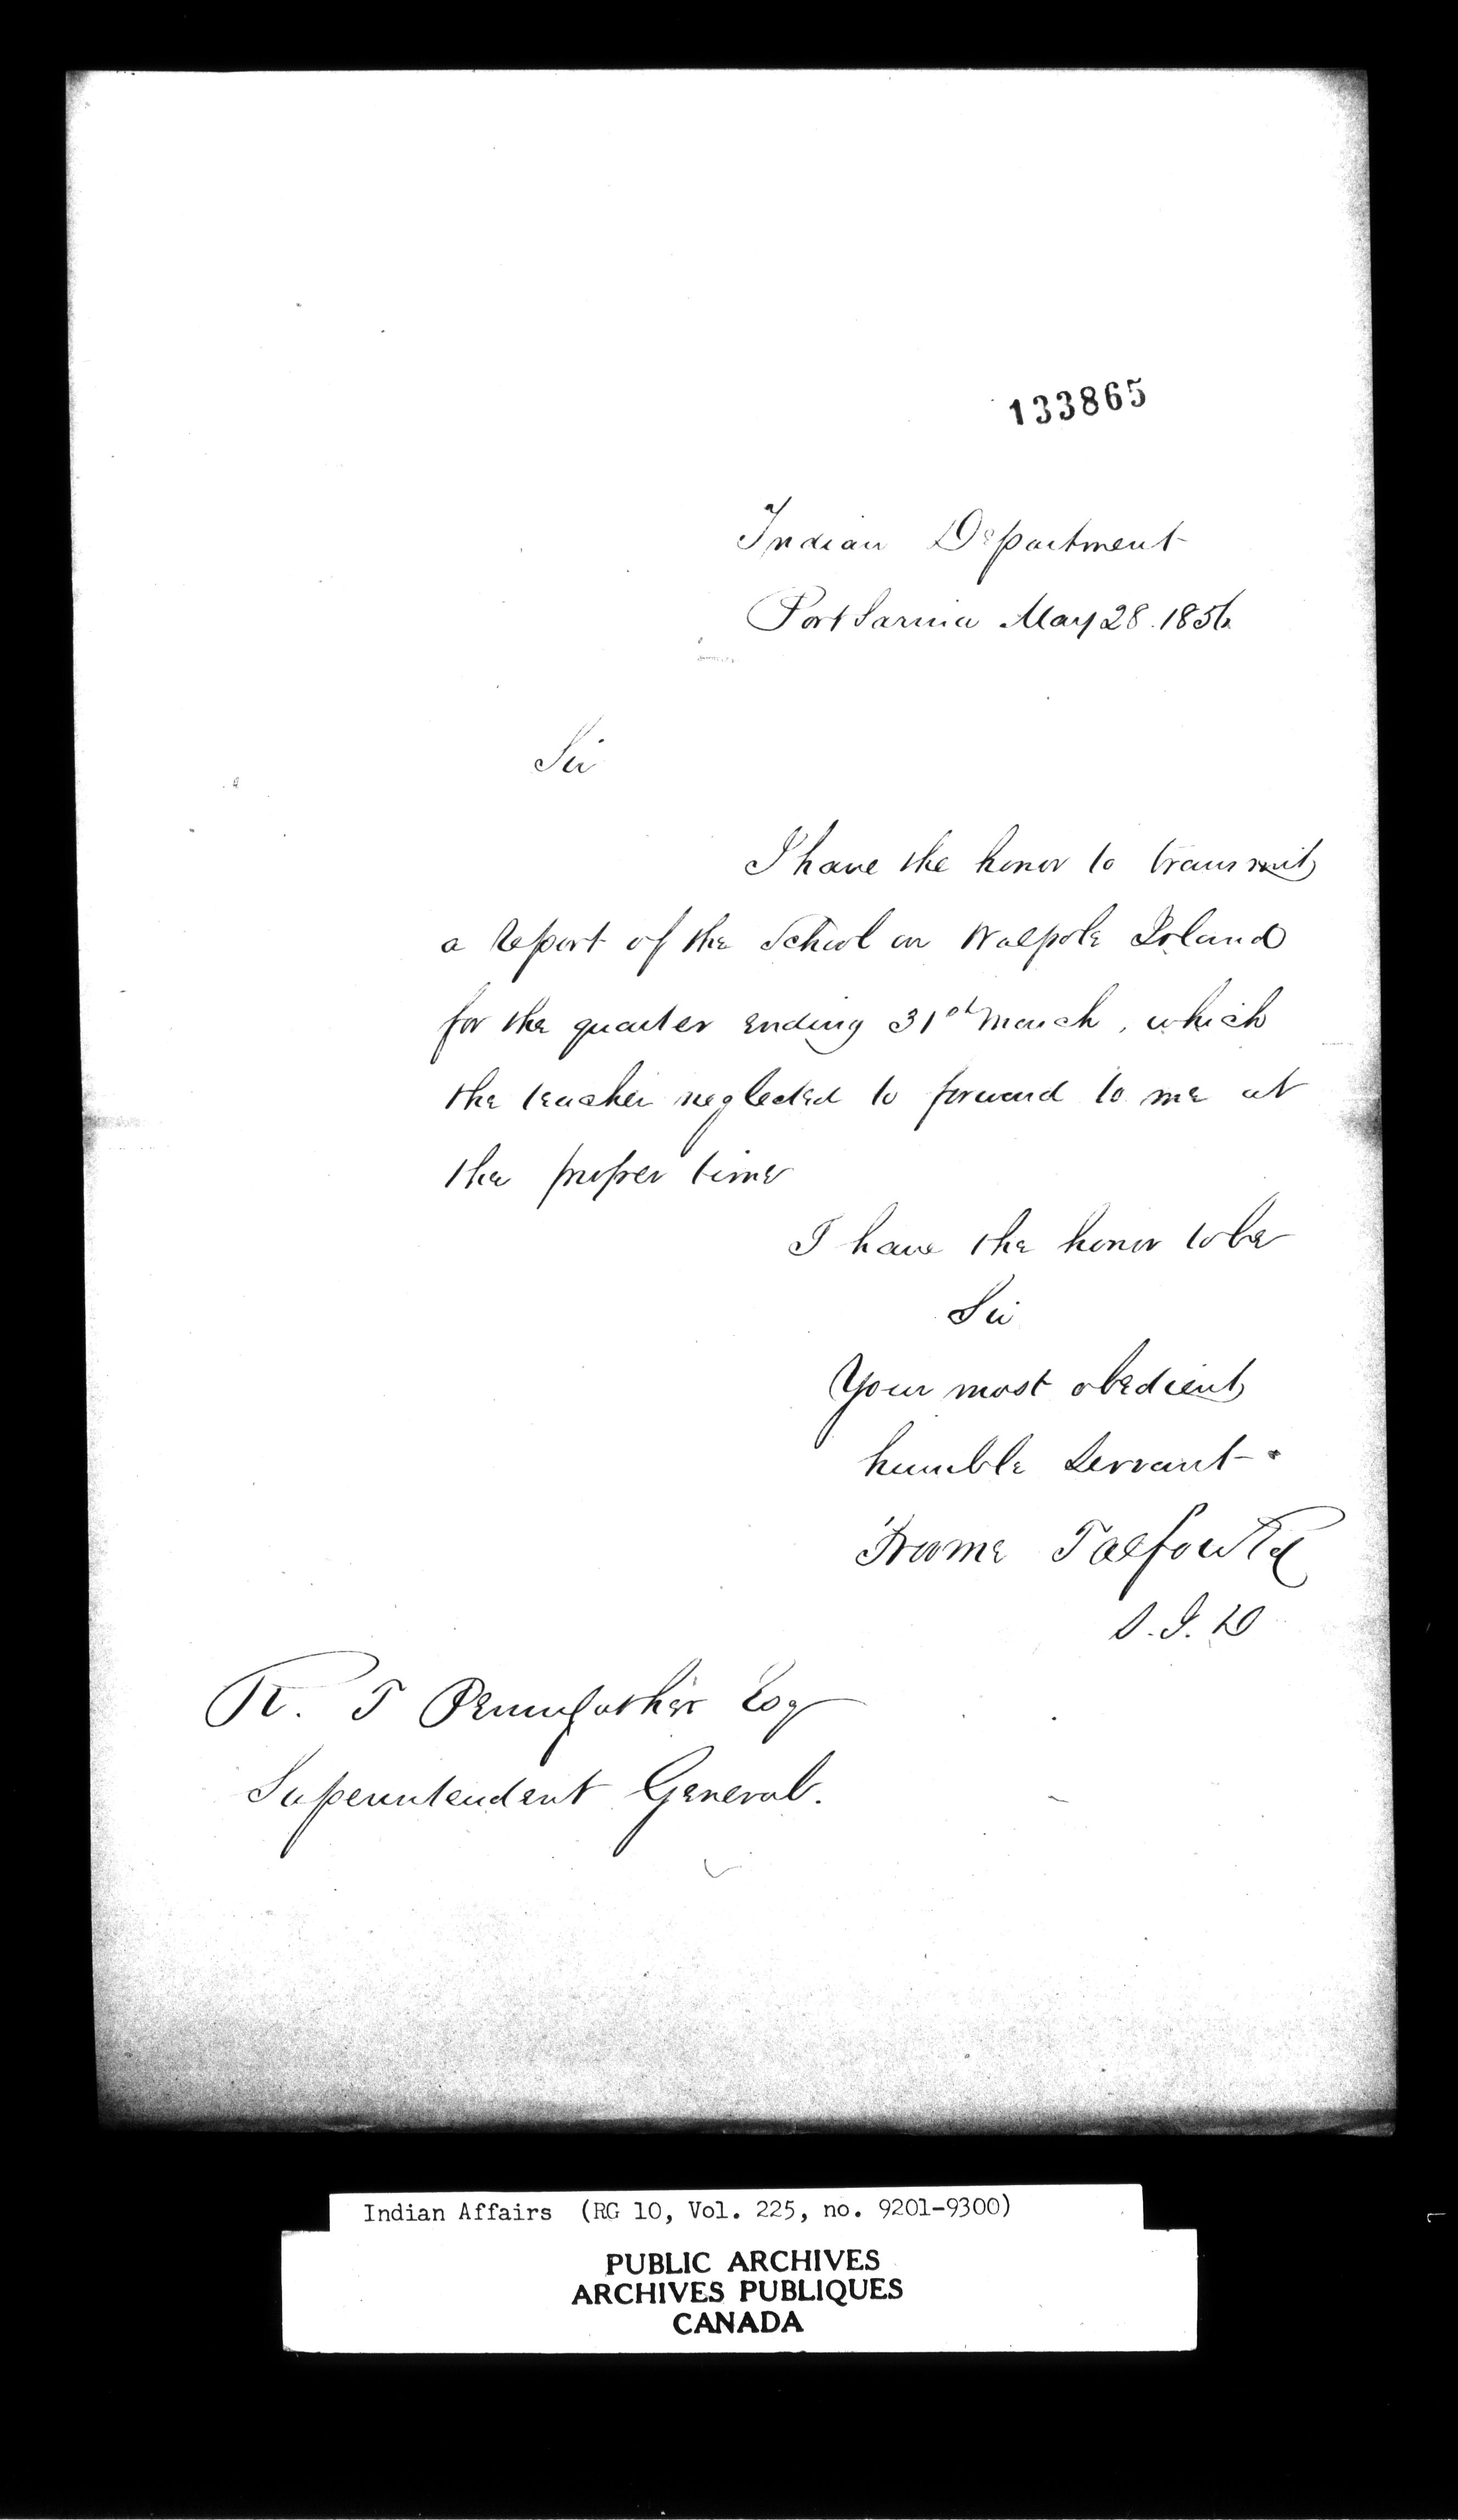 133865
Indian Department
Port Sarnia May 28. 1856
Sir
I have the honor to transmit
a Report of the School on Walpole Island
for the quarter ending 31st March, which
the teacher neglected to forward to me at
the proper time
I have the honor to be
Sir
Your most obedient
humble Servant
Froome Talfourd
S.I.D
R. T Pennefather Esq
Superintendent General.
Indian Affairs (RG 10, Vol. 225, no. 9201-9300)
PUBLIC ARCHIVES
ARCHIVES PUBLIQUES
CANADA